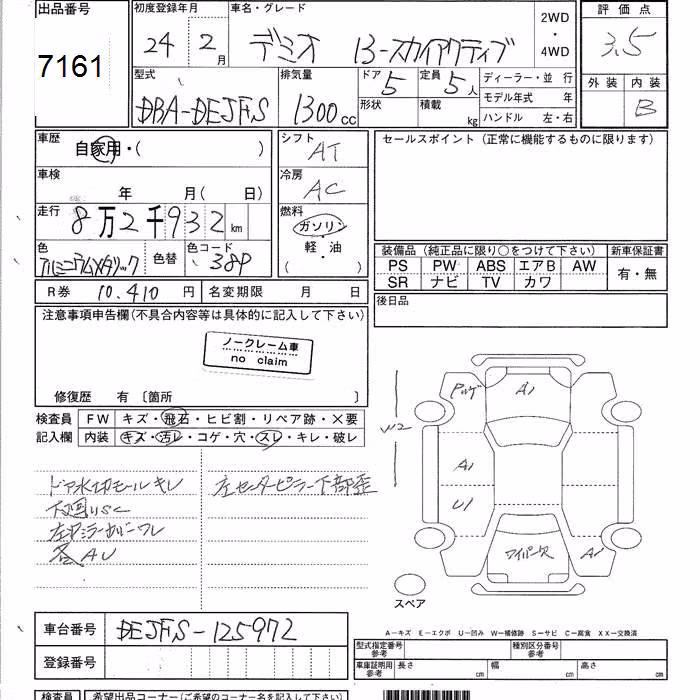 出品番号
7161
初度登録年月
24 年 2 月
車名・グレード
デミオ 13-スカイアクティブ
2WD
・
4WD
評価点
3.5
外装 内装
B
型式
DBA-DEJFS
排気量
1300 cc
ドア 5
形状
定員 5 人
積載 kg
ディーラー・並 行
モデル年式 年
ハンドル 左・右
車歴
自家用・( )
車検
年 月( 日)
走行
8万2千932 km
色
アルミニウムメタリック
色替
色コード
38P
シフト
AT
冷房
AC
燃料
ガソリン
・
軽・油
( )
セールスポイント(正常に機能するものに限ります)
装備品(純正品に限り○をつけて下さい)
新車保証書
PS PW ABS エアB AW
SR ナビ TV カワ
有・無
後日品
R券 10.410 円
名変期限 月 日
注意事項申告欄(不具合内容等は具体的に記入して下さい)
ノークレーム車
no claim
修復歴 有 〔箇所 〕
検査員
記入欄
FW キズ・飛石・ヒビ割・リペア跡・×要
内装 キズ・汚レ・コゲ・穴・スレ・キレ・破レ
ドア水切モールキレ
下回リSC
左ドアミラーカバーワレ
各AU
左センターピラー下部歪
A1
A1
U1
A1
ワイパー欠
スペア
A-キズ E-エクボ U-凹み W-補修跡 S-サビ C-腐食 XX-交換済
車台番号
DEJFS-125972
登録番号
型式指定番号
参考
種別区分番号
参考
車庫証明用
参考
長さ cm
幅 cm
高さ cm
検査員
希望出品コーナー(ご希望のコーナー名を記入して下さい)